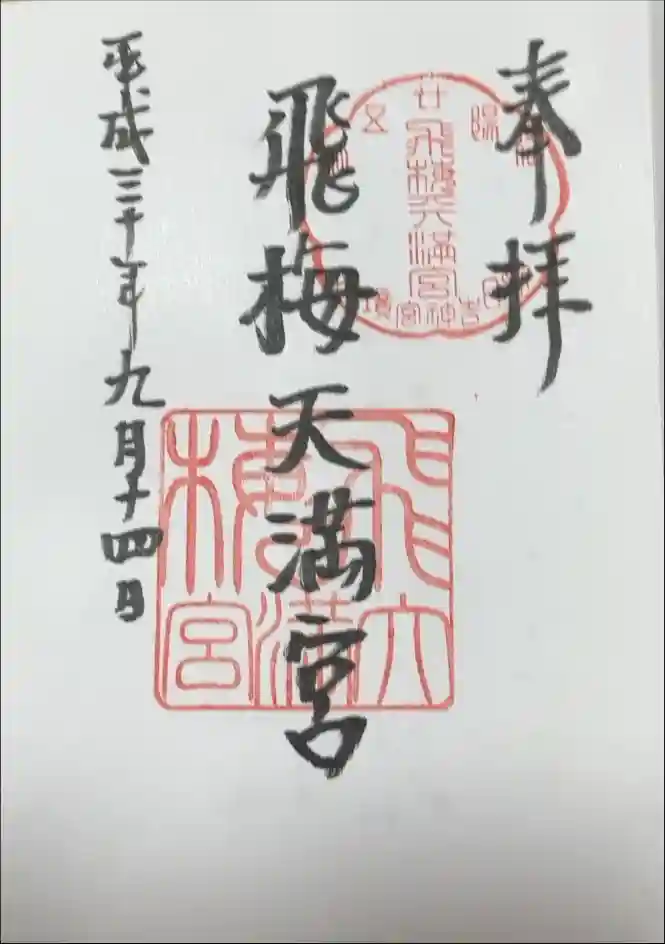 奉拝
飛梅天満宮
平成三十年九月十四日
飛梅天満宮